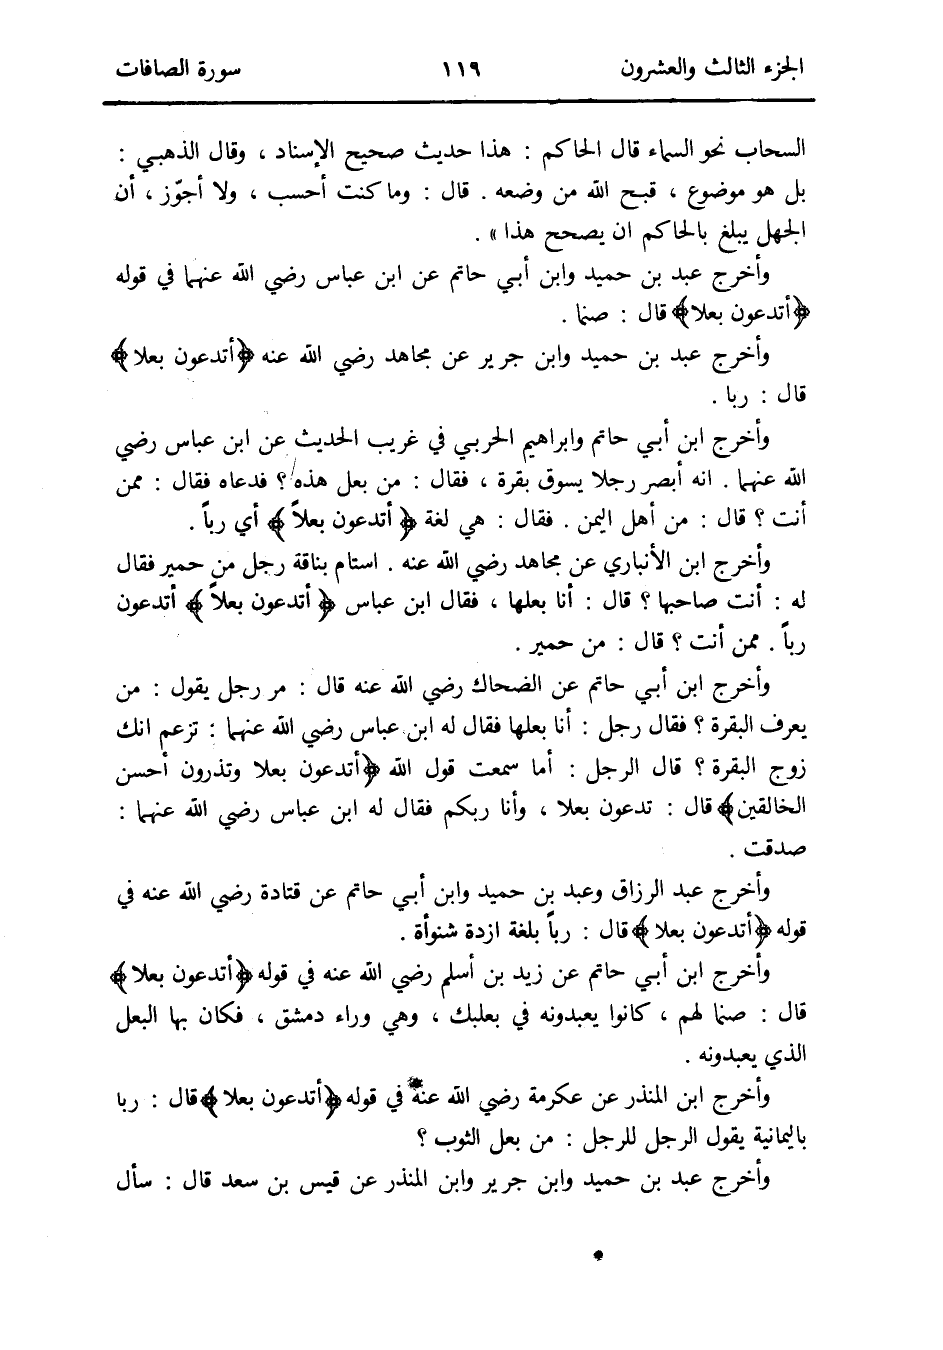 الجزء الثالث والعشرون ١١٩ سورة الصافات
السحاب نحو السماء قال الحاكم : هذا حديث صحيح الإسناد ، وقال الذهبي :
بل هو موضوع ، قبح الله من وضعه . قال : وما كنت أحسب ، ولا أجوّز ، أن
الجهل يبلغ بالحاكم ان يصحح هذا » .
وأخرج عبد بن حميد وابن أبي حاتم عن ابن عباس رضي الله عنهما في قوله
﴿أتدعون بعلا﴾ قال : صنما .
وأخرج عبد بن حميد وابن جرير عن مجاهد رضي الله عنه ﴿أتدعون بعلا﴾
قال : ربا .
وأخرج ابن أبي حاتم وابراهيم الحربي في غريب الحديث عن ابن عباس رضي
الله عنهما . انه أبصر رجلا يسوق بقرة ، فقال : من بعل هذه ؟ فدعاه فقال : ممن
أنت ؟ قال : من أهل اليمن . فقال : هي لغة ﴿ أتدعون بعلاً ﴾ أي رباً .
وأخرج ابن الأنباري عن مجاهد رضي الله عنه . استام بناقة رجل من حمير فقال
له : أنت صاحبها ؟ قال : أنا بعلها ، فقال ابن عباس ﴿ أتدعون بعلاً ﴾ أتدعون
رباً . ممن أنت ؟ قال : من حمير .
وأخرج ابن أبي حاتم عن الضحاك رضي الله عنه قال : مر رجل يقول : من
يعرف البقرة ؟ فقال رجل : أنا بعلها فقال له ابن عباس رضي الله عنهما : تزعم انك
زوج البقرة ؟ قال الرجل : أما سمعت قول الله ﴿أتدعون بعلا وتذرون أحسن
الخالقين﴾ قال : تدعون بعلا ، وأنا ربكم فقال له ابن عباس رضي الله عنهما :
صدقت .
وأخرج عبد الرزاق وعبد بن حميد وابن أبي حاتم عن قتادة رضي الله عنه في
قوله ﴿أتدعون بعلا﴾ قال : رباً بلغة ازدة شنوأة .
وأخرج ابن أبي حاتم عن زيد بن أسلم رضي الله عنه في قوله ﴿أتدعون بعلا﴾
قال : صنما لهم ، كانوا يعبدونه في بعلبك ، وهي وراء دمشق ، فكان بها البعل
الذي يعبدونه .
وأخرج ابن المنذر عن عكرمة رضي الله عنه في قوله ﴿أتدعون بعلا﴾ قال : ربا
باليمانية يقول الرجل للرجل : من بعل الثوب ؟
وأخرج عبد بن حميد وابن جرير وابن المنذر عن قيس بن سعد قال : سأل